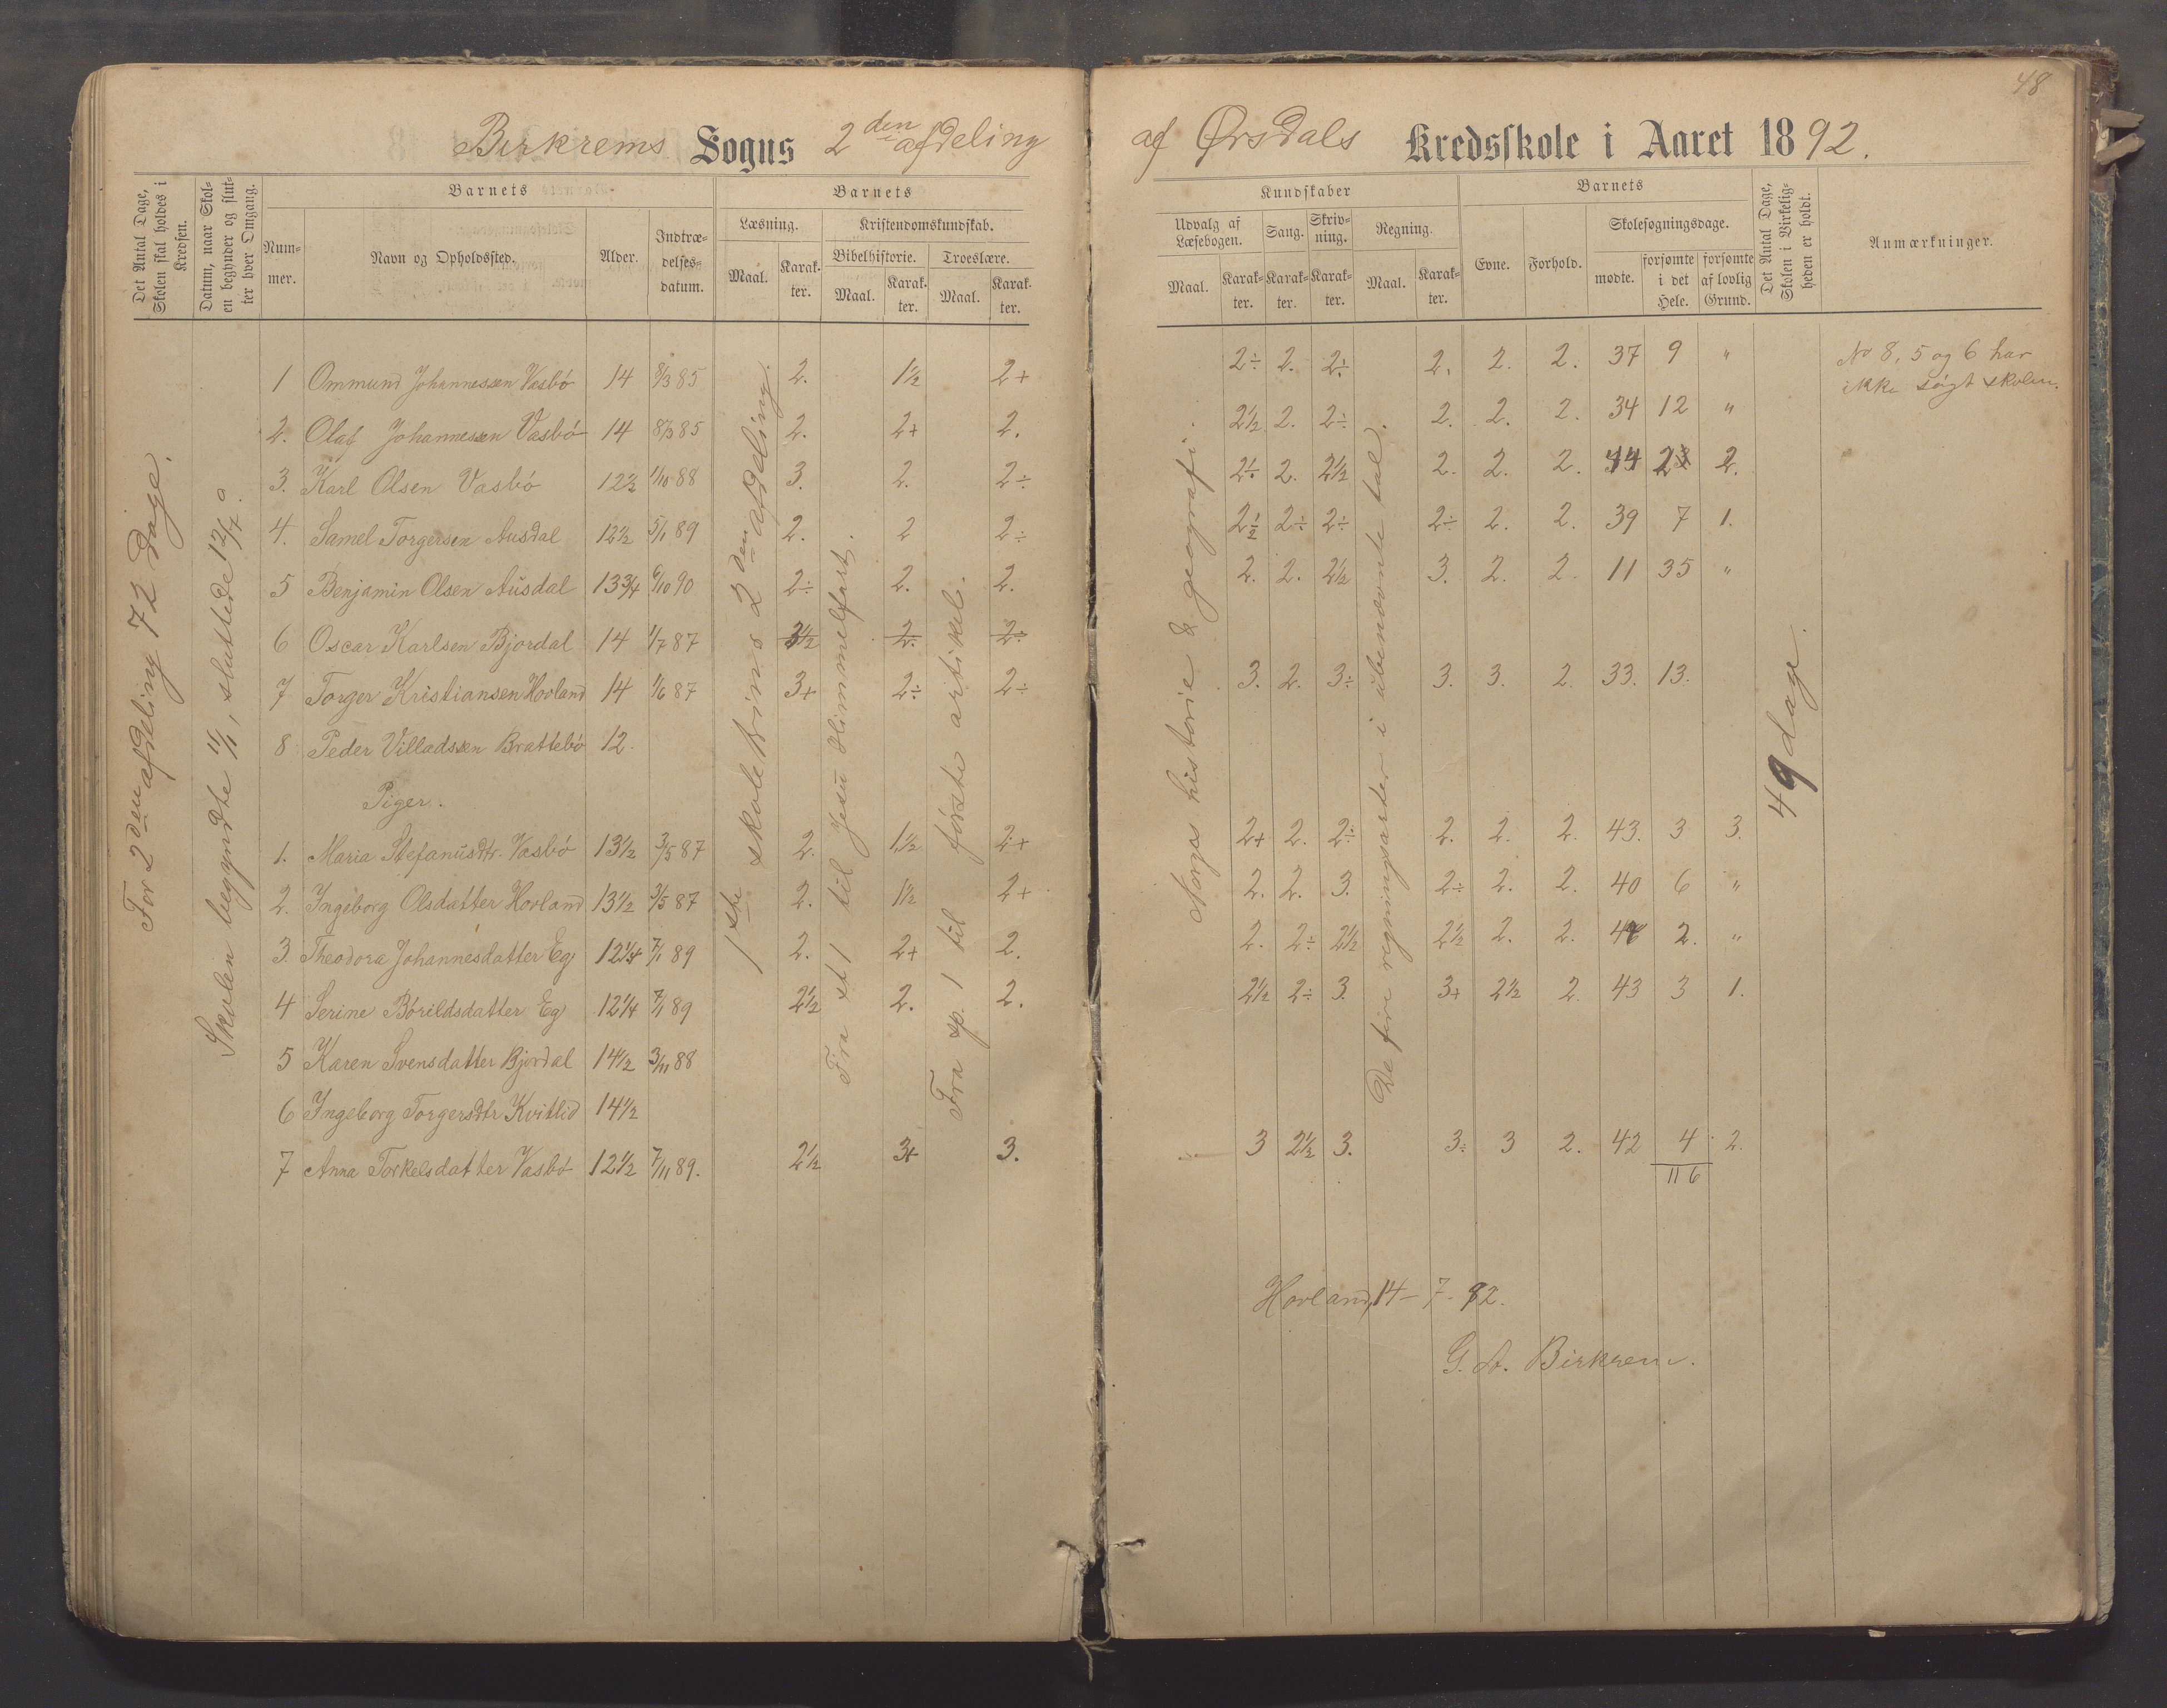 48
Birkrems Sogns 2den afdeling af Ørsdals Kredsskole i Aaret 1892.
Det Antal Dage, Skolen skal holdes i Kredsen.
Datum, naar Skolen begynder og slutter hver Omgang.
Barnets
Nummer.
Navn og Opholdssted.
Alder.
Indtrædelsesdatum.
Barnets
Læsning.
Maal.
Karakter.
Kristendomskundskab.
Bibelhistorie.
Maal.
Karakter.
Troeslære.
Maal.
Karakter.
Kundskaber
Udvalg af Læsebogen.
Maal.
Karakter.
Sang.
Karakter.
Skrivning.
Karakter.
Regning.
Maal.
Karakter.
Barnets
Evne.
Forhold.
Skolesøgningsdage.
mødte.
forsømte i det Hele.
forsømte af lovlig Grund.
Det Antal Dage, Skolen i Virkeligheden er holdt.
Anmærkninger.
For 2den afdeling 72 dage.
Skolen begyndte 11/1, sluttede 12/7
1ste skoletrins 2den afdeling.
Fra st 1 til Jesu Himmelfart.
Fra sp. 1 til første artikel.
Norges historie & geografi.
De fire regningsarter i ubenævnte tal.
49 dage.
1 Ommund Johannessen Vasbø 14 8/3 85 2. 1½ 2+ 2÷ 2. 2÷ 2. 2. 2. 37 9 "
No 8, 5 og 6 har
ikke søgt skolen.
2. Olaf Johannessen Vasbø 14 8/3 85 2. 2+ 2. 2½ 2. 2÷ 2. 2. 2. 34 12 "
3. Karl Olsen Vasbø 12½ 1/10 88 3. 2. 2÷ 2÷ 2. 2½ 2. 2. 2. 44 2 2.
4. Samel Torgersen Ausdal 12½ 5/1 89 2. 2 2÷ 2½ 2÷ 2÷ 2÷ 2. 2. 39 7 1.
5 Benjamin Olsen Ausdal 13¾ 6/10 90 2÷ 2. 2. 2. 2. 2½ 3. 2. 2. 11 35 "
6 Oscar Karlsen Bjordal 14 1/7 87 3½ 2. 2÷
7 Torger Kristiansen Hovland 14 1/6 87 3+ 2÷ 2÷ 3. 2. 3÷ 3. 3. 2. 33. 13.
8 Peder Villadssen Brattebø 12.
Piger.
1. Maria Stefanusdtr. Vasbø 13½ 3/5 87 2. 1½ 2+ 2+ 2. 2÷ 2. 2. 2. 43. 3 3.
2. Ingeborg Olsdatter Hovland 13½ 3/5 87 2. 1½ 2+ 2. 2. 3. 2÷ 2. 2. 40 6 "
3. Theodora Johannesdatter Eg 12¼ 7/1 89 2. 2+ 2. 2. 2÷ 2½ 2½ 2. 2. 44 2. "
4 Serine Børildsdatter Eg 12¼ 7/1 89 2½ 2. 2. 2½ 2÷ 3. 3+ 2½ 2. 43 3 1.
5 Karen Svensdatter Bjordal 14½ 3/11 88
6 Ingeborg Torgersdtr Kvitlid 14½
7 Anna Torkelsdatter Vasbø 12½ 7/11 89. 2½ 3+ 3. 3 2½ 3. 3÷ 3 2. 42 4 2.
116
Hovland, 14-7-92.
G. A. Birkrem.